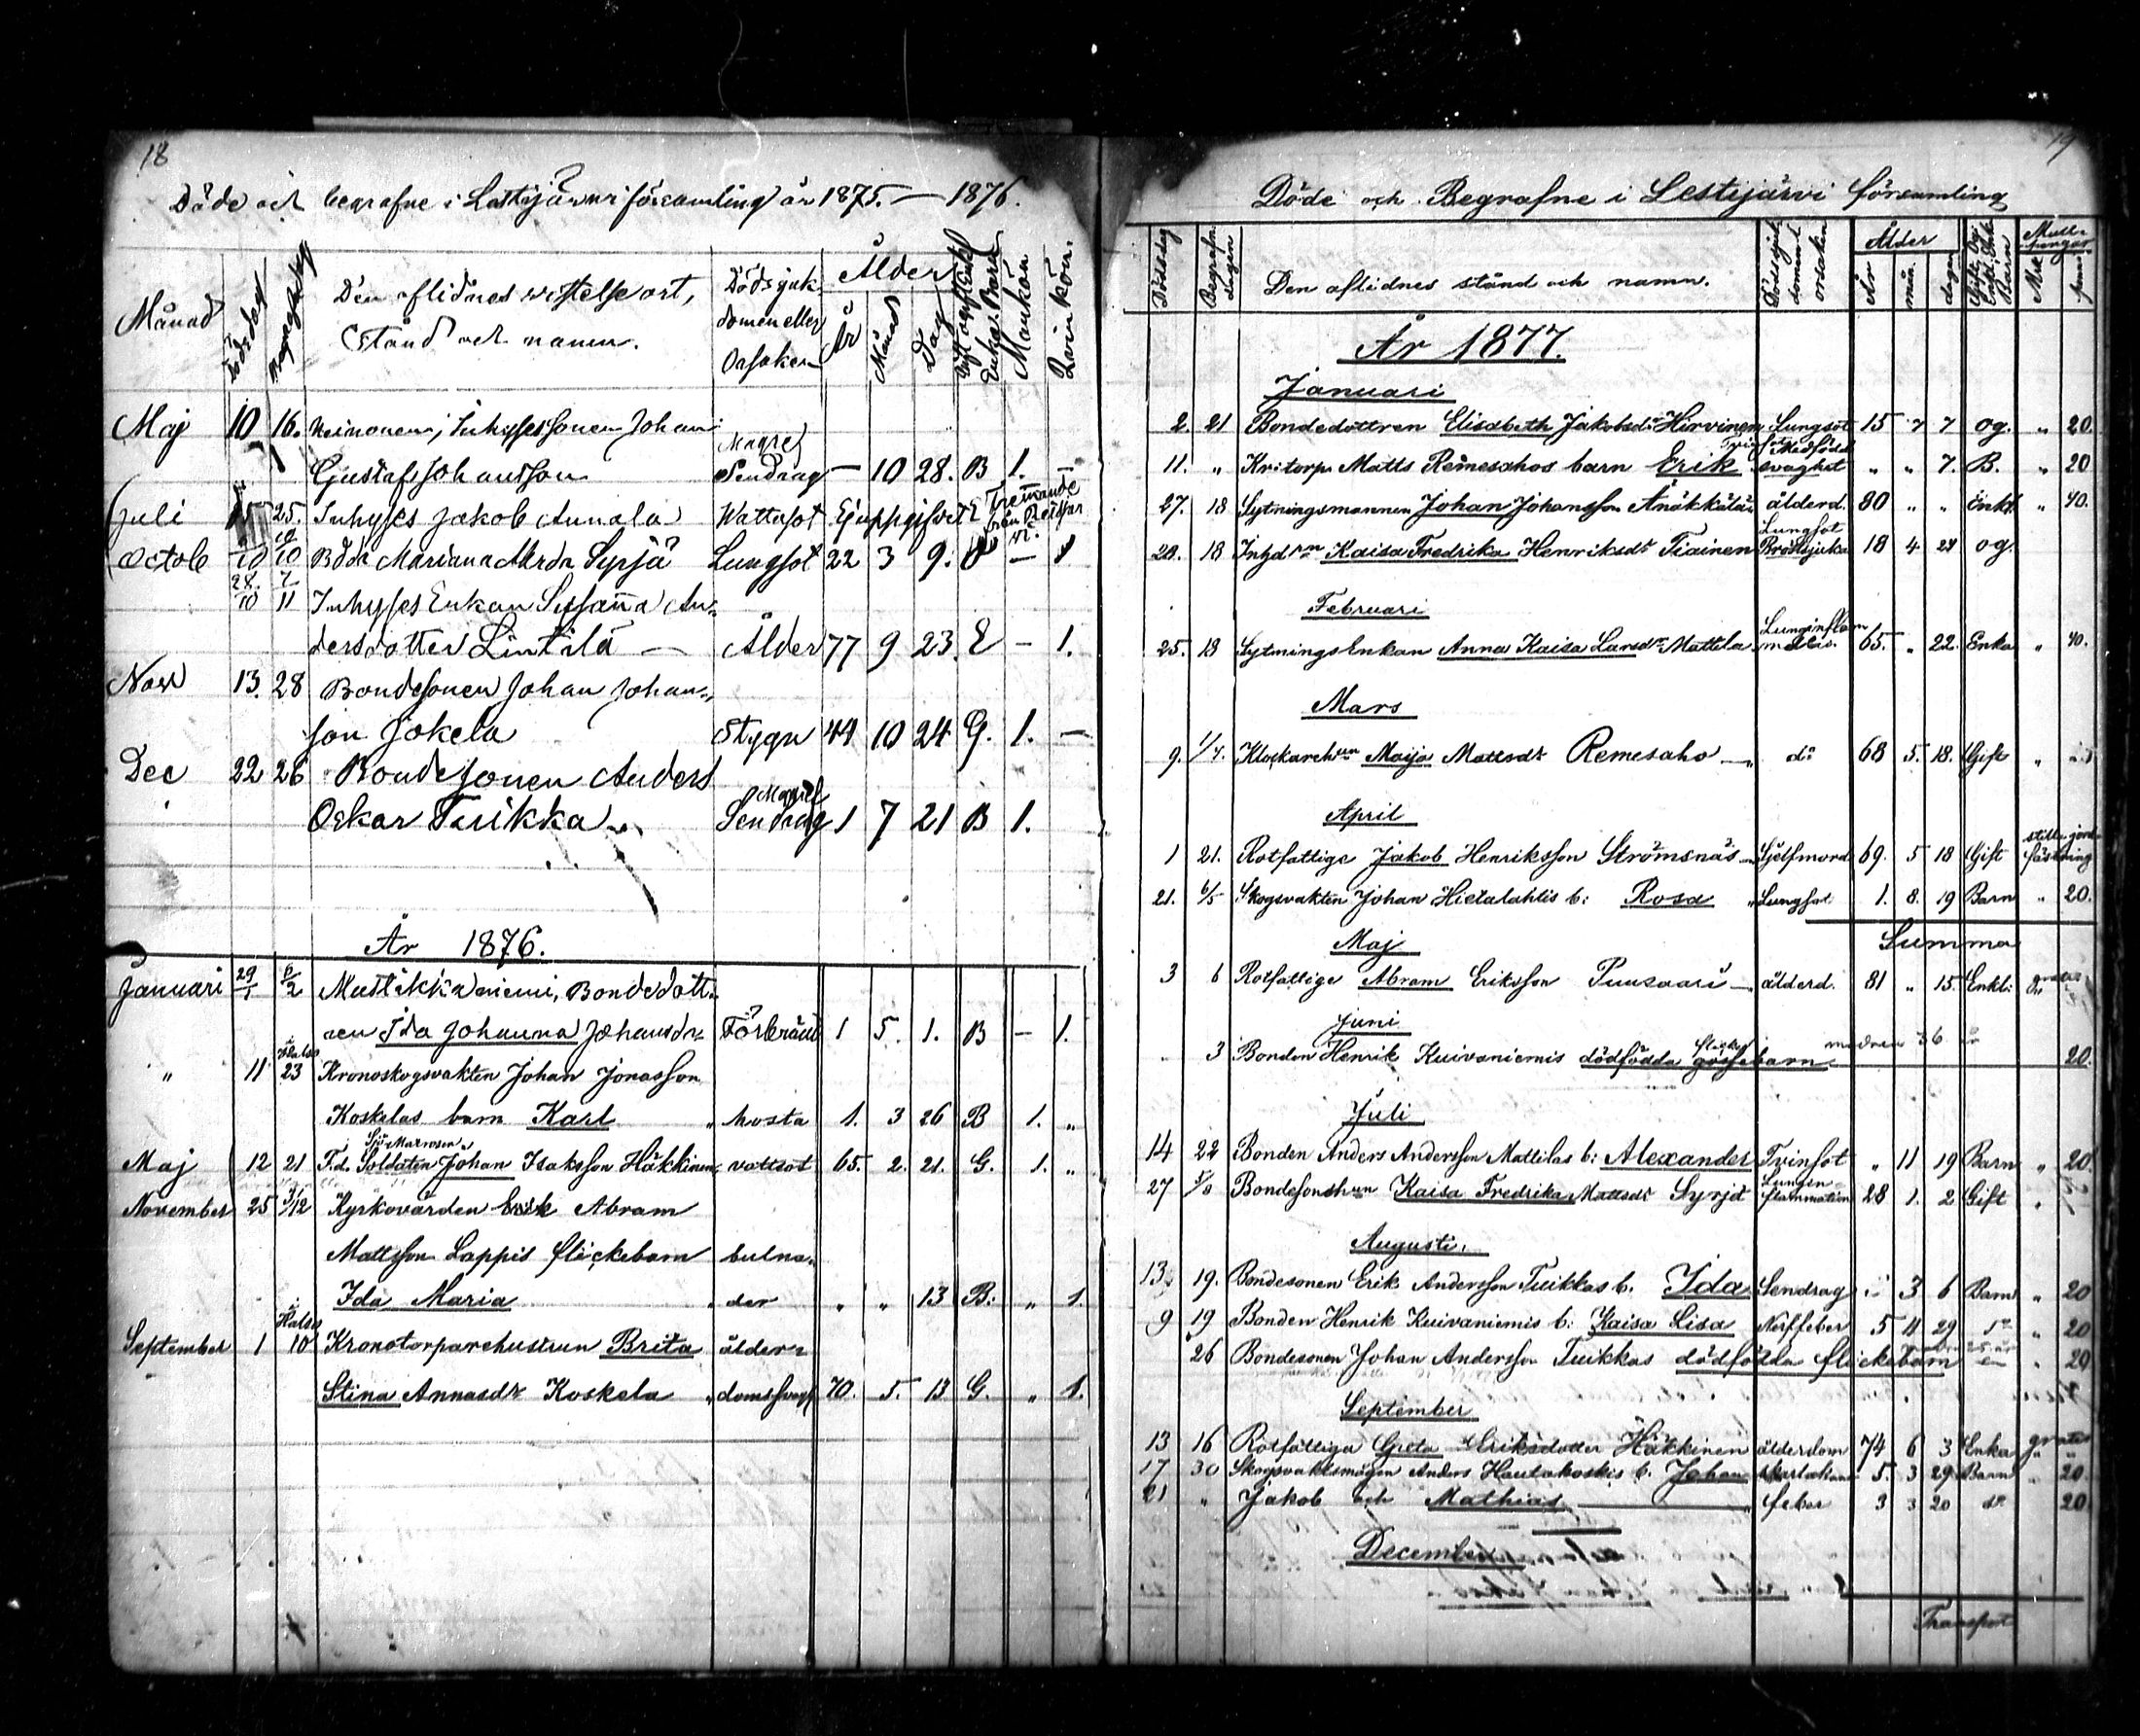 18
Döde och begrafne i Lestijärvi församling år 1875. — 1876.
Månad Dödsdag Begrafn.dag Den aflidnes vistelse ort, Dödsjuk- Ålder
domen eller År Månad Dag Mankön Qvinkön
Stånd och namn. Orsaken
Maj 10 16. Neinonen, Inhysessonen Johan
Gustaf Johansson Magref Sendrag — 10 28. B 1. —
Juli 25. Inhyses Jakob Annala Wattusot Ej uppgifvet E från Reisjär
Octob 10 Bdtr Mariana Mrdr Syrjä Lungsot 22 3 9. — 1
28/10 7/11 Inhyses Enkan Susanna An-
dersdotter Lintilä — Ålder 77 9 23. E — 1.
Nov 13. 28 Bondesonen Johan Johans-
son Jokela Stygn 44 10 24 G. 1. —
Dec 22 26 Bondesonen Anders
Oskar Tuikka Magref Sendrag 1 7 21 B 1.
År 1876.
Januari 29/1 6/2 Mustikkaniemi, Bondedott-
ren Ida Johanna Johansdr Förbränd 1 5. 1. B — 1.
" 11 i Halso 23 Kronoskogsvakten Johan Jonasson
Koskelas barn Karl " hosta 1. 3 26 B 1. "
Maj 12 21 F.d. Soldaten Johan Isaksson Häkkinen vattsot 65. 2. 21. G. 1. "
November 25 3/12 Kyrkovärden Erik Abram
Mattsson Lappis flickebarn bulna-
Ida Maria " der " " 13 B. " 1.
September 1 i Halso 10 Kronotorparehustrun Brita ålder-
Stina Annasdr Koskela " domssvagh 70. 5. 13 G. " 1.
19
Döde och Begrafne i Lestijärvi församling
Dödsdag Begrafn. dagen Den aflidnes stånd och namn. Dödssjuk domen l. orsaken Ålder År mån. dagar Barn Mull- pengar Mrk penni
År 1877.
Januari
2. 21 Bondedottren Elisabeth Jakobsdr Hirvinen Lungsot 15 7 7 og. " 20.
11. " Kr.torp. Matts Remesahos barn Erik Medfödd svaghet " " 7. B. " 20
27. 18 Sytningsmannen Johan Johansson Änäkkälä ålderd. 80 " " Enkl " 40.
28. 18 Inhdrn Kaisa Fredrika Henriksdr Tiainen Lungsot Bröstsjuka 18 4 27 og.
Februari
25. 18 Sytnings Enkan Anna Kaisa Larsdr Mattila Lunginflammation 65. " 22. Enka " 40.
Mars
9. 1/4. Klockarehun Maija Mattsdr Remesaho — do 68 5. 18. Gift "
April
1 21. Rotfattige Jakob Henriksson Strömsnäs Sjelfmord 69. 5 18 Gift
21. 6/5 Skogsvakten Johan Hietalahtis b: Rosa " Lungsot. 1. 8. 19 Barn " 20.
Maj Summa
3 6 Rotfattige Abram Eriksson Puusaari — ålderd. 81 " 15. Enkl: gratis
Juni
3 Bonden Henrik Kuivaniemis dödfödda flicke gossebarn modren 36 år 20.
Juli
14 22 Bonden Anders Andersson Mattilas b: Alexander Tvinsot " 11 19 Barn " 20.
27 5/8 Bondesonshun Kaisa Fredrika Mattsdr Syrjä Lungin- flammation 28 1. 2 Gift "
Augusti.
13. 19. Bondesonen Erik Andersson Tuikkas b. Ida Sendrag " 3 6 Barn " 20
9 19 Bonden Henrik Kuivaniemis b: Kaisa Lisa Nerffeber 5 11 29 do " 20
26 Bondesonen Johan Andersson Tuikkas dödfödda flickebarn " 20
September
13 16 Rotfattiga Greta Eriksdotter Häkkinen ålderdom 74 6 3 Enka gratis
17 30 Skogsvaktsmågen Anders Hautakoskis b. Johan skarlakans 5. 3 29 Barn " 20
21 " Jakob och Mathias — " feber 3 3 20 do 20.
December
Transport